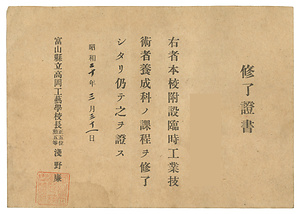 修了證書
右者本校附設臨時工業技
術者養成科ノ課程ヲ修了
シタリ仍テ之ヲ證ス
昭和二十年三月三十一日
富山縣立高岡工藝學校長正五位勳五等淺野廉